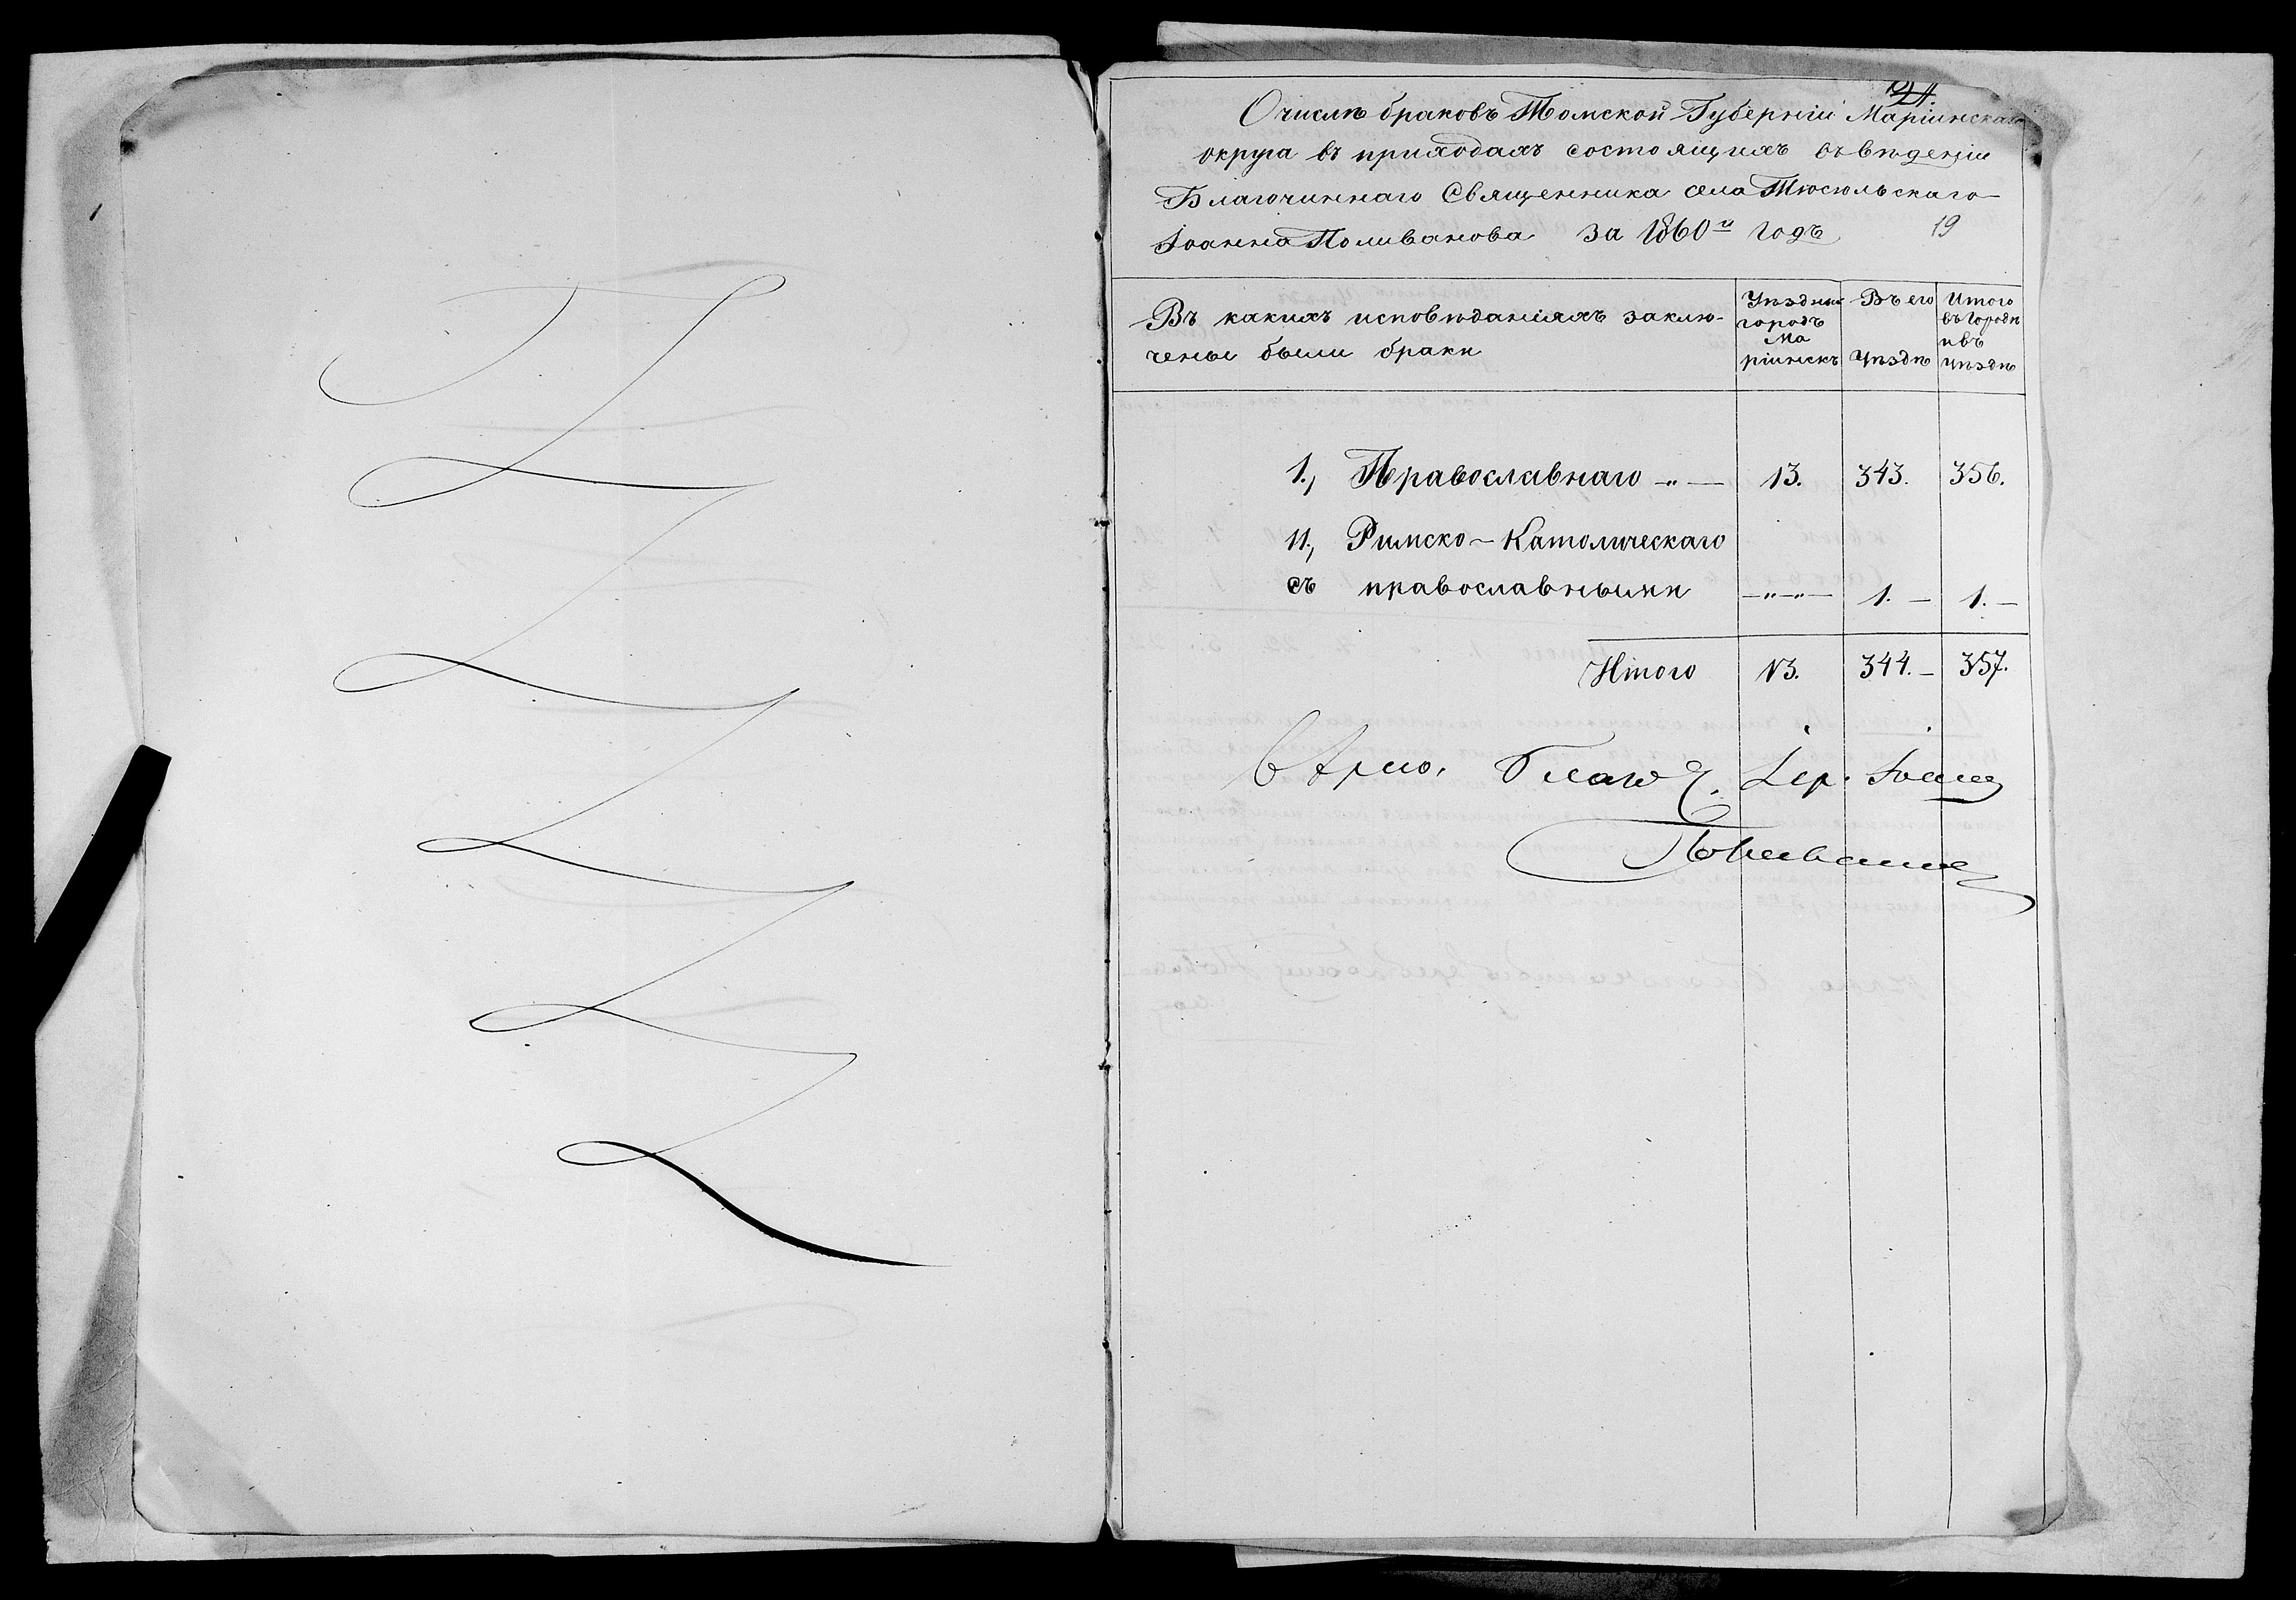 О числѣ браковъ Томской Губерніи Маріинскаго
округа въ приходахъ состоящихъ въ вѣденіи
Благочиннаго Священника села Тюсюльскаго
Іоанна Поливанова за 1860й годъ 19
Въ какихъ исповѣданіяхъ заклю- Уѣздный Въ его Итого
городъ въ Городѣ
чены были браки Ма и въ
ріинскъ Уѣздѣ уѣздѣ
1., Православнаго -„- 13. 343. 356.
11., Римско-Католическаго
съ православными -„-„- 1.- 1.-
Итого 13. 344.- 357.
Іер. Іоаннъ
Поливановъ